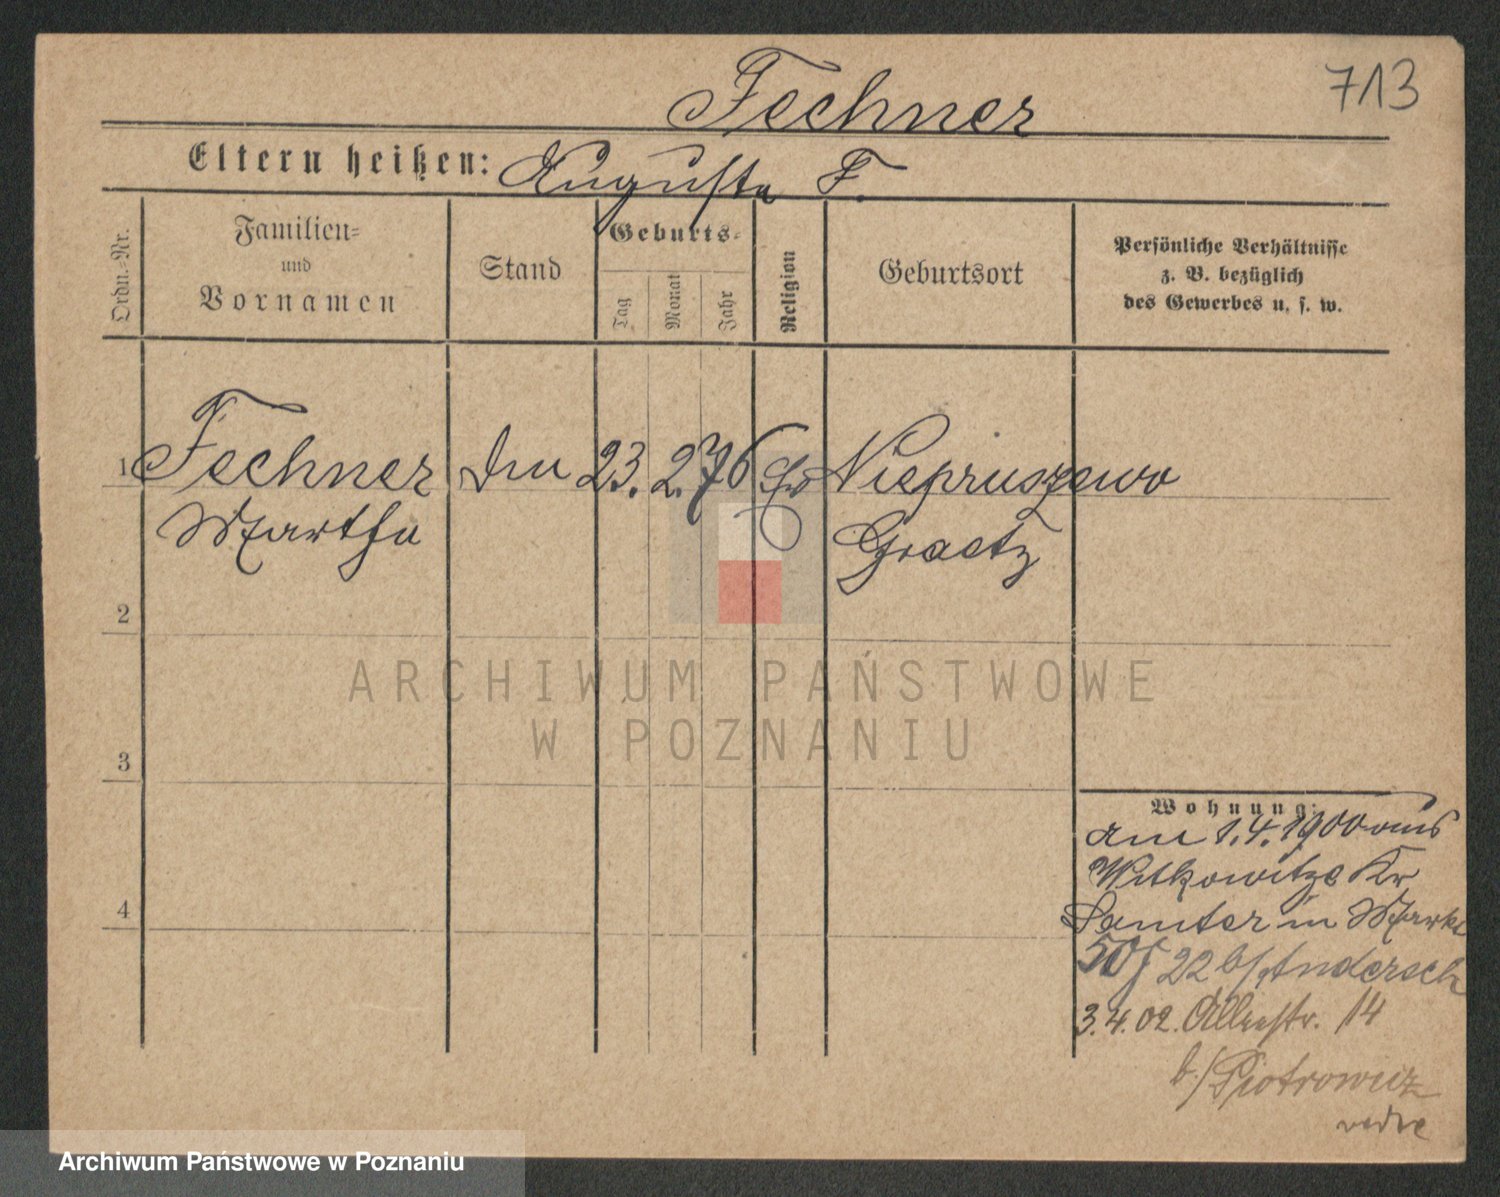 713
Fechner
Eltern heißen: Auguste F.
Ordn.-Nr.
Familien-
und
Vornamen
Stand
Geburts-
Tag
Monat
Jahr
Religion
Geburtsort
Persönliche Verhältnisse
z. B. bezüglich
des Gewerbes u. s. w.
1 Fechner 23. 2. 76 Niepruszewo
Martha Graetz
2
3
4
Wohnung:
am 1.4.1900 aus
Witkowitze Kr
Samter in Markt
50/ 22 b/Andersch
3.4.02. 14
b/Piotrowicz
ARCHIWUM PAŃSTWOWE
W POZNANIU
Archiwum Państwowe w Poznaniu